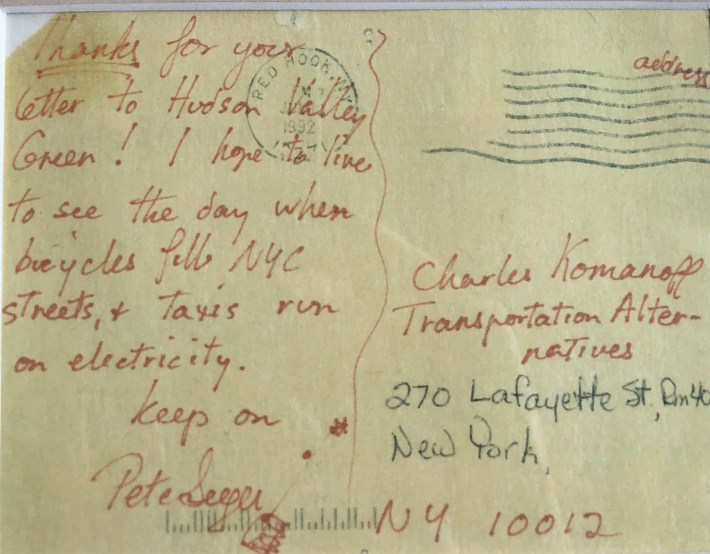 Thanks for your
letter to Hudson Valley
Green! I hope to live
to see the day when
bicycles fill NYC
streets, & taxis run
on electricity.
keep on
Pete Seeger
RED HOOK, NY
1992
address
Charles Komanoff
Transportation Alter-
natives
270 Lafayette St, Rm 40
New York,
NY 10012